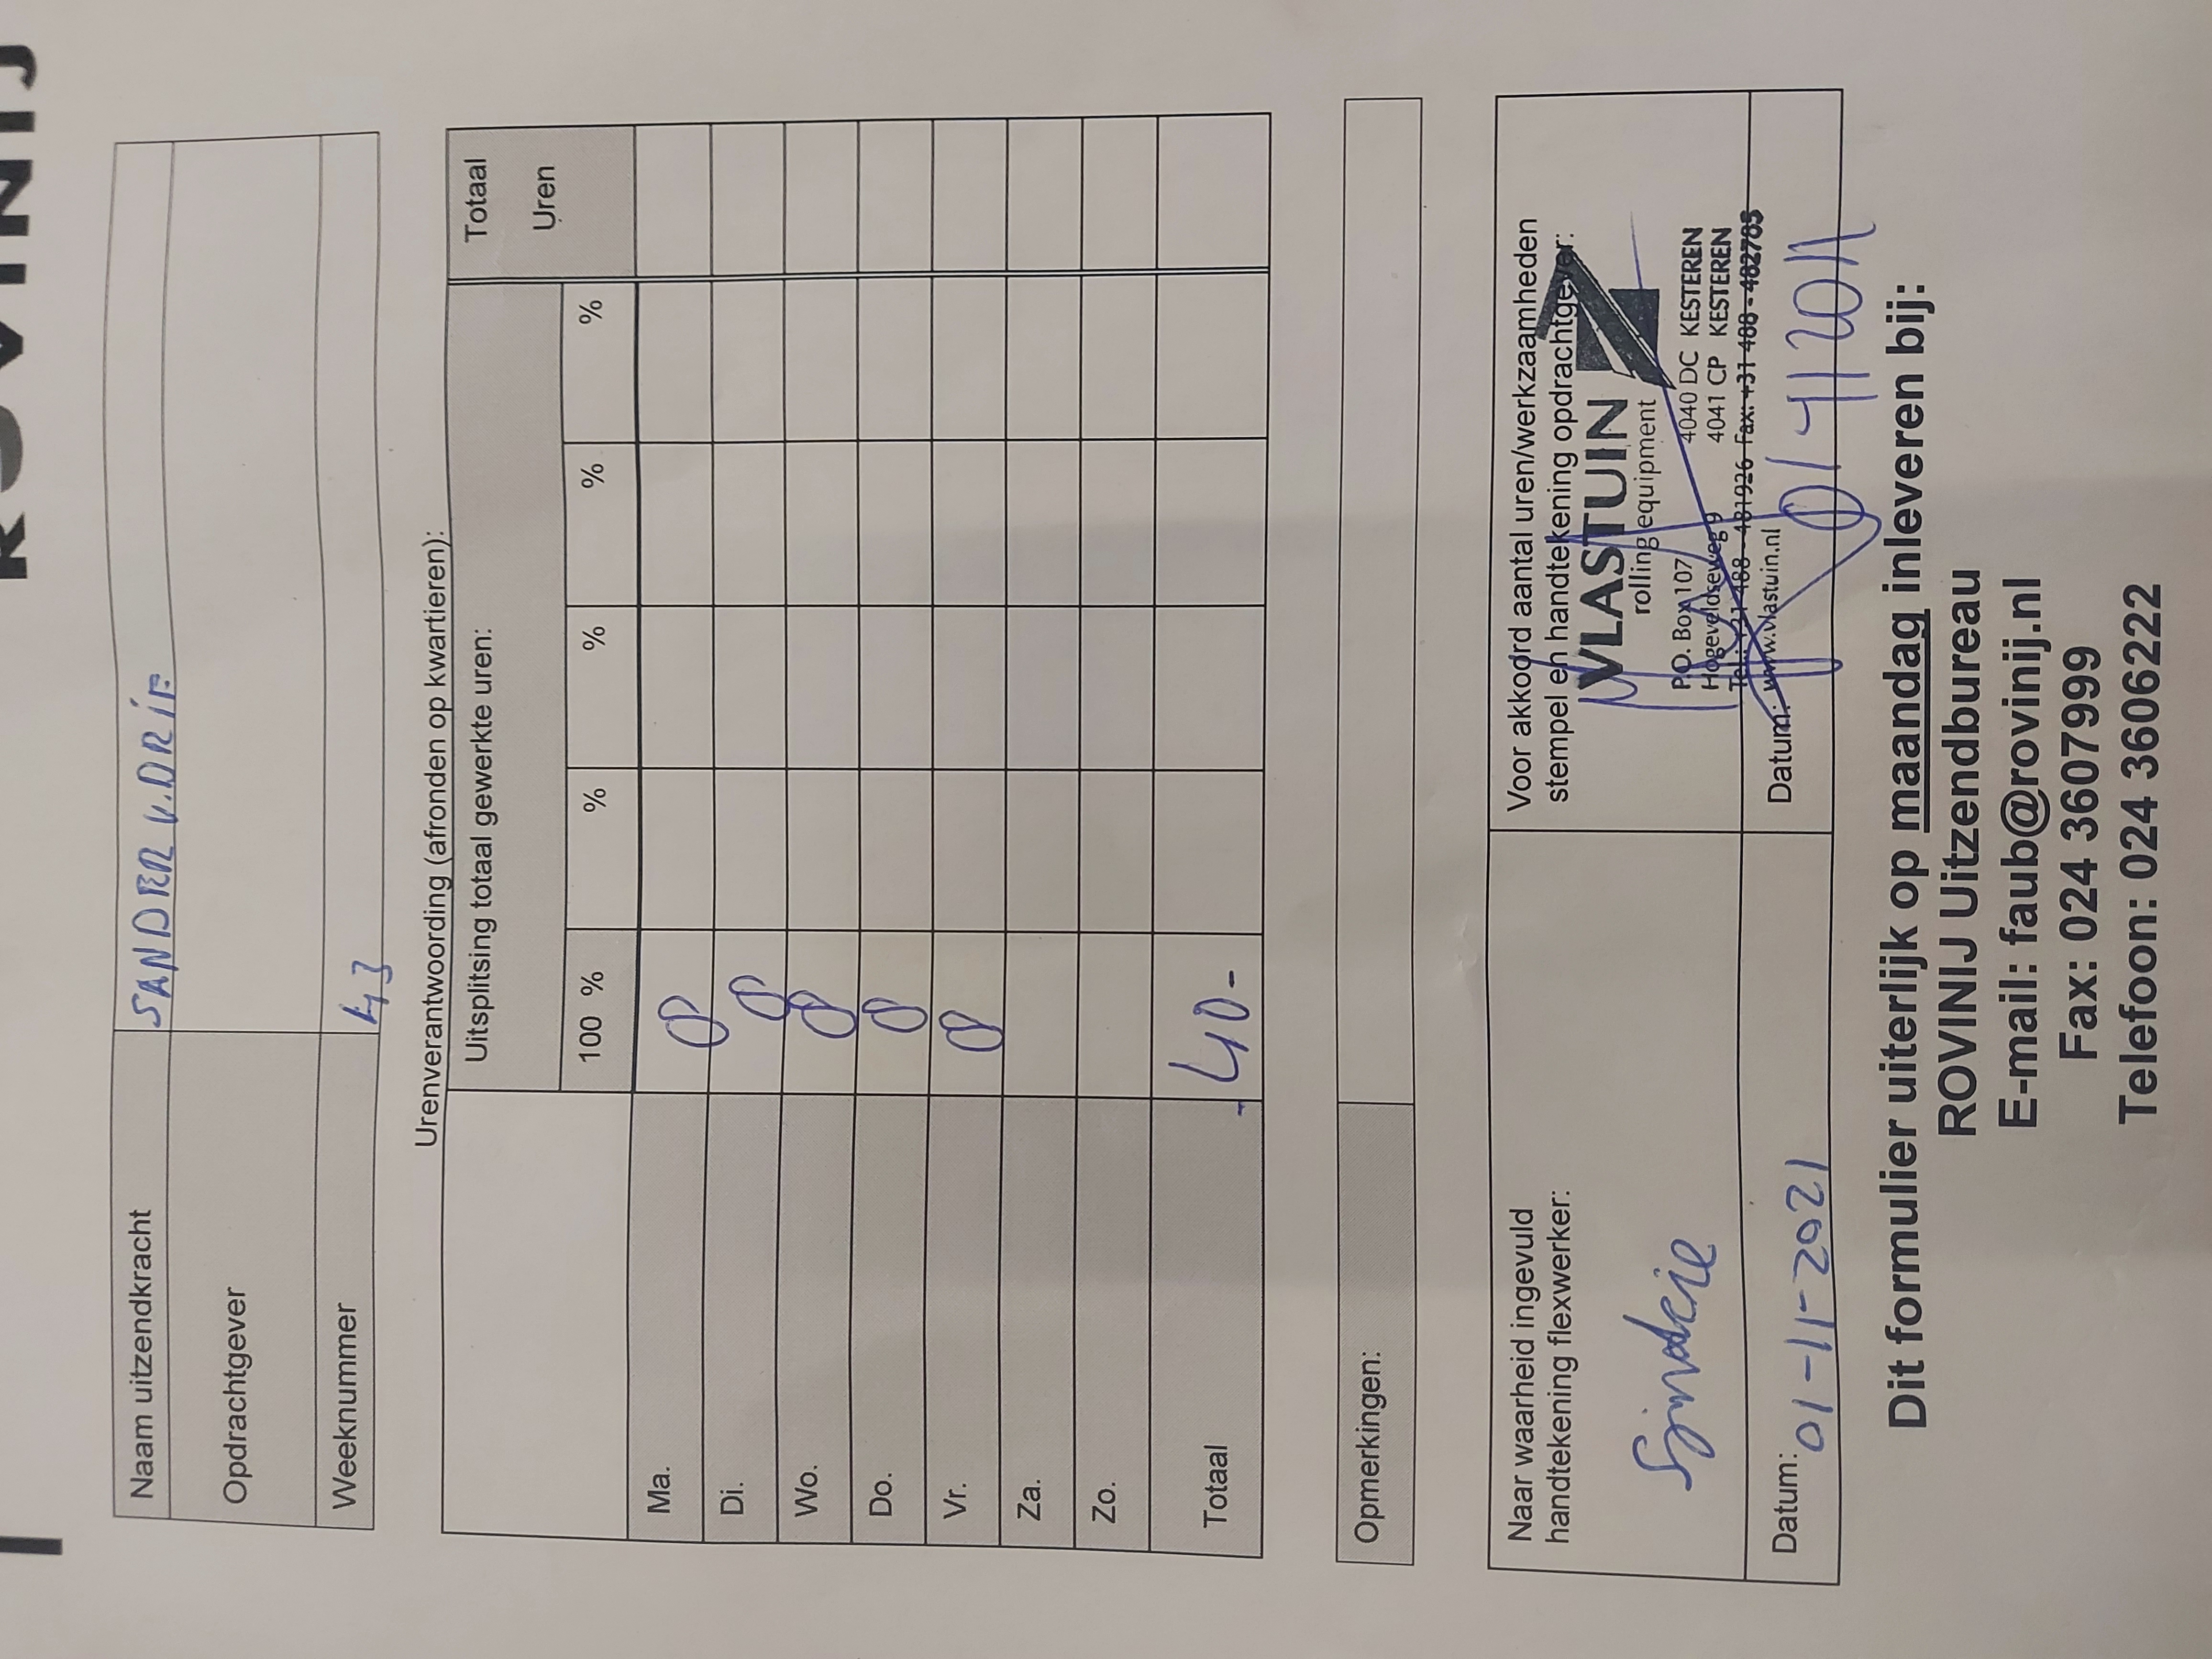 ROVINIJ
Naam uitzendkracht SANDER V.DRIE
Opdrachtgever
Weeknummer 43
Urenverantwoording (afronden op kwartieren):
Uitsplitsing totaal gewerkte uren: Totaal
Uren
100 % % % % %
Ma. 8
Di. 8
Wo. 8
Do. 8
Vr. 8
Za.
Zo.
Totaal -40-
Opmerkingen:
Naar waarheid ingevuld
handtekening flexwerker:
Voor akkoord aantal uren/werkzaamheden
stempel en handtekening opdrachtgever:
VLASTUIN
rolling equipment
P.O. Box 107 4040 DC KESTEREN
Hogeveldseweg 9 4041 CP KESTEREN
Tel.: +31 488 - 481926 Fax: +31 488 - 482785
www.vlastuin.nl
Datum: 01-11-2021
Datum:
Dit formulier uiterlijk op maandag inleveren bij:
ROVINIJ Uitzendbureau
E-mail: faub@rovinij.nl
Fax: 024 3607999
Telefoon: 024 3606222